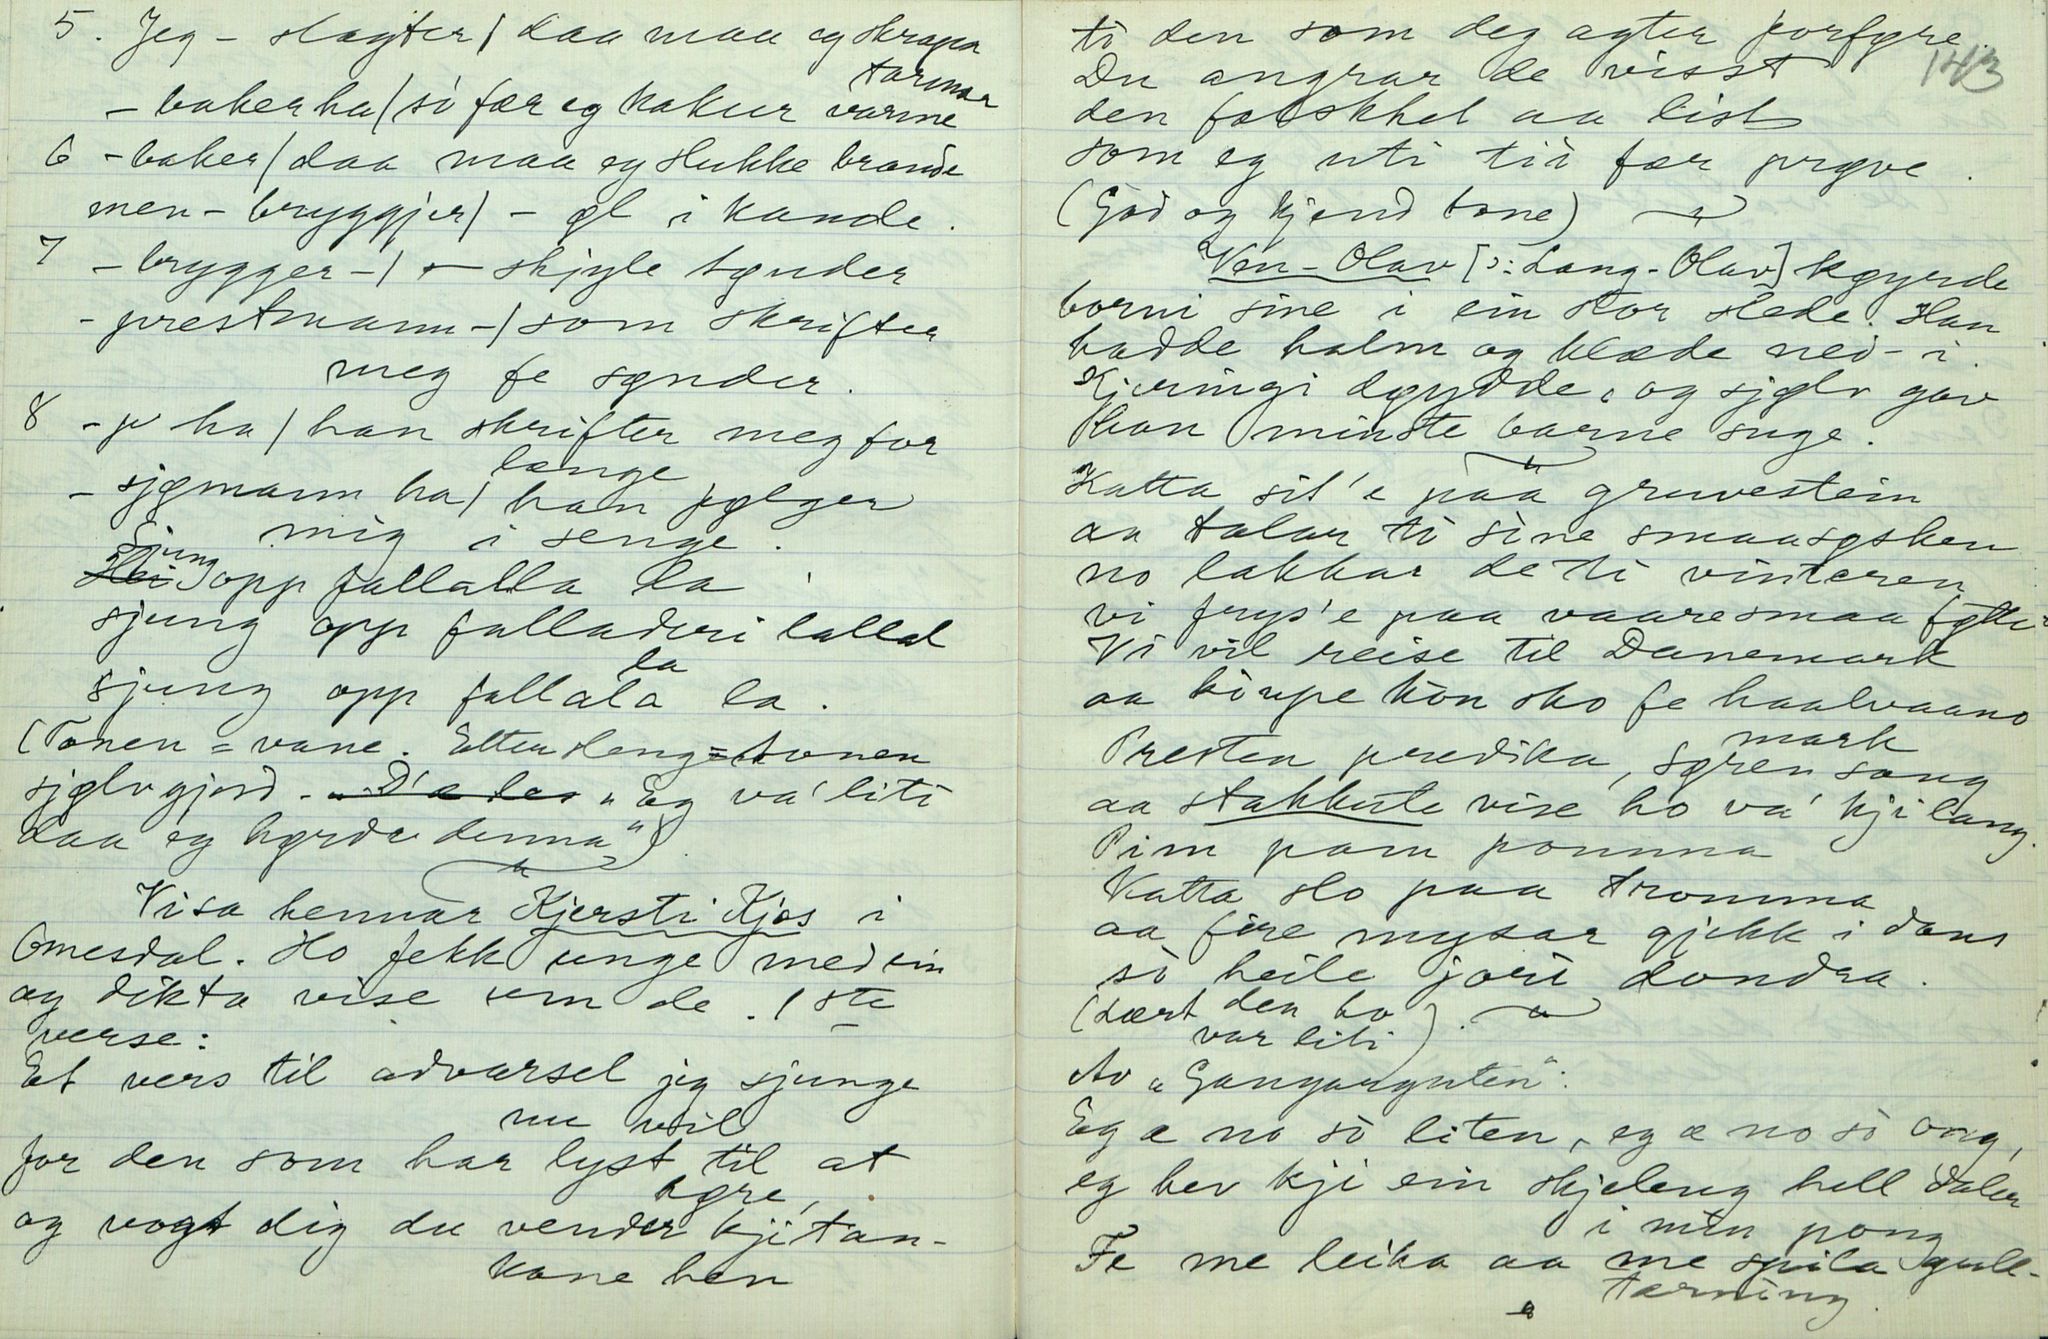 5. Jeg – slagter / daa maa eg skrapa
tarmar
– baker ha / so fær eg kakur varme
6 – baker / daa maa eg slukke brande
men – bryggjer / – øl i kande.
7 – brygger – / – skjyle tønder
– prestmann – / som skrifter
meg fe sønder.
8 – p ha / han skrifter meg for
længe
– sjømann ha / han følger
mig i senge.
Sjung opp fallalla la
sjung opp falladeri lallal
sjung opp fallala la la.
(Tonen = vane. Ettersleng = tonen
sjølvgjord. „Eg va' liti
daa eg hørde denna")
Visa hennar Kjersti Kjos i
Omesdal. Ho fekk unge med ein
og dikta vise um de. 1ste
verse:
Et vers til advarsel jeg sjunge
nu vil
for den som har lyst til at
høre,
og vogt dig du vender kji tan-
kane hen
143
ti den som deg agter forføre.
Du angrar de visst
den falskhet aa list
som eg uti tii fær prøve.
(God og kjend tone)
Ven-Olav [ɔ: Lang-Olav] køyrde
borni sine i ein stor slede. Han
hadde halm og klæde ned-i.
Kjeringi døydde, og sjølv gav
han minste barne suge.
Katta sit'e paa gruvestein
aa talar ti sine smaasøsken
no lakkar de ti vinteren
vi frys'e paa vaare smaa føtter
Vi vil reise til Danemark
aa kaupe kon sko fe haalvaano
mark
Presten predika, søren song
aa stakkute vise ho va' kji lang.
Pim pam pomma
Katta slo paa tromma
aa fire mysar gjekk i dans
so heile jori dondra.
(Lært den ho
var liti)
Av „Gangarguten":
Eg æ no so liten, eg æ no so ong,
eg hev kji ein skjeleng hell daler
i min pong
Fe me leika aa me spila gull-
tærning.